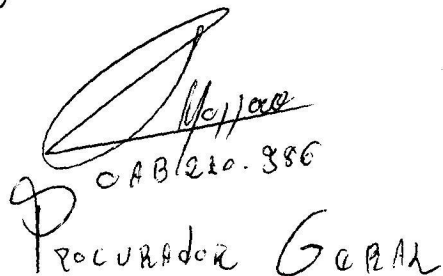 OAB 210.986
Procurador Geral